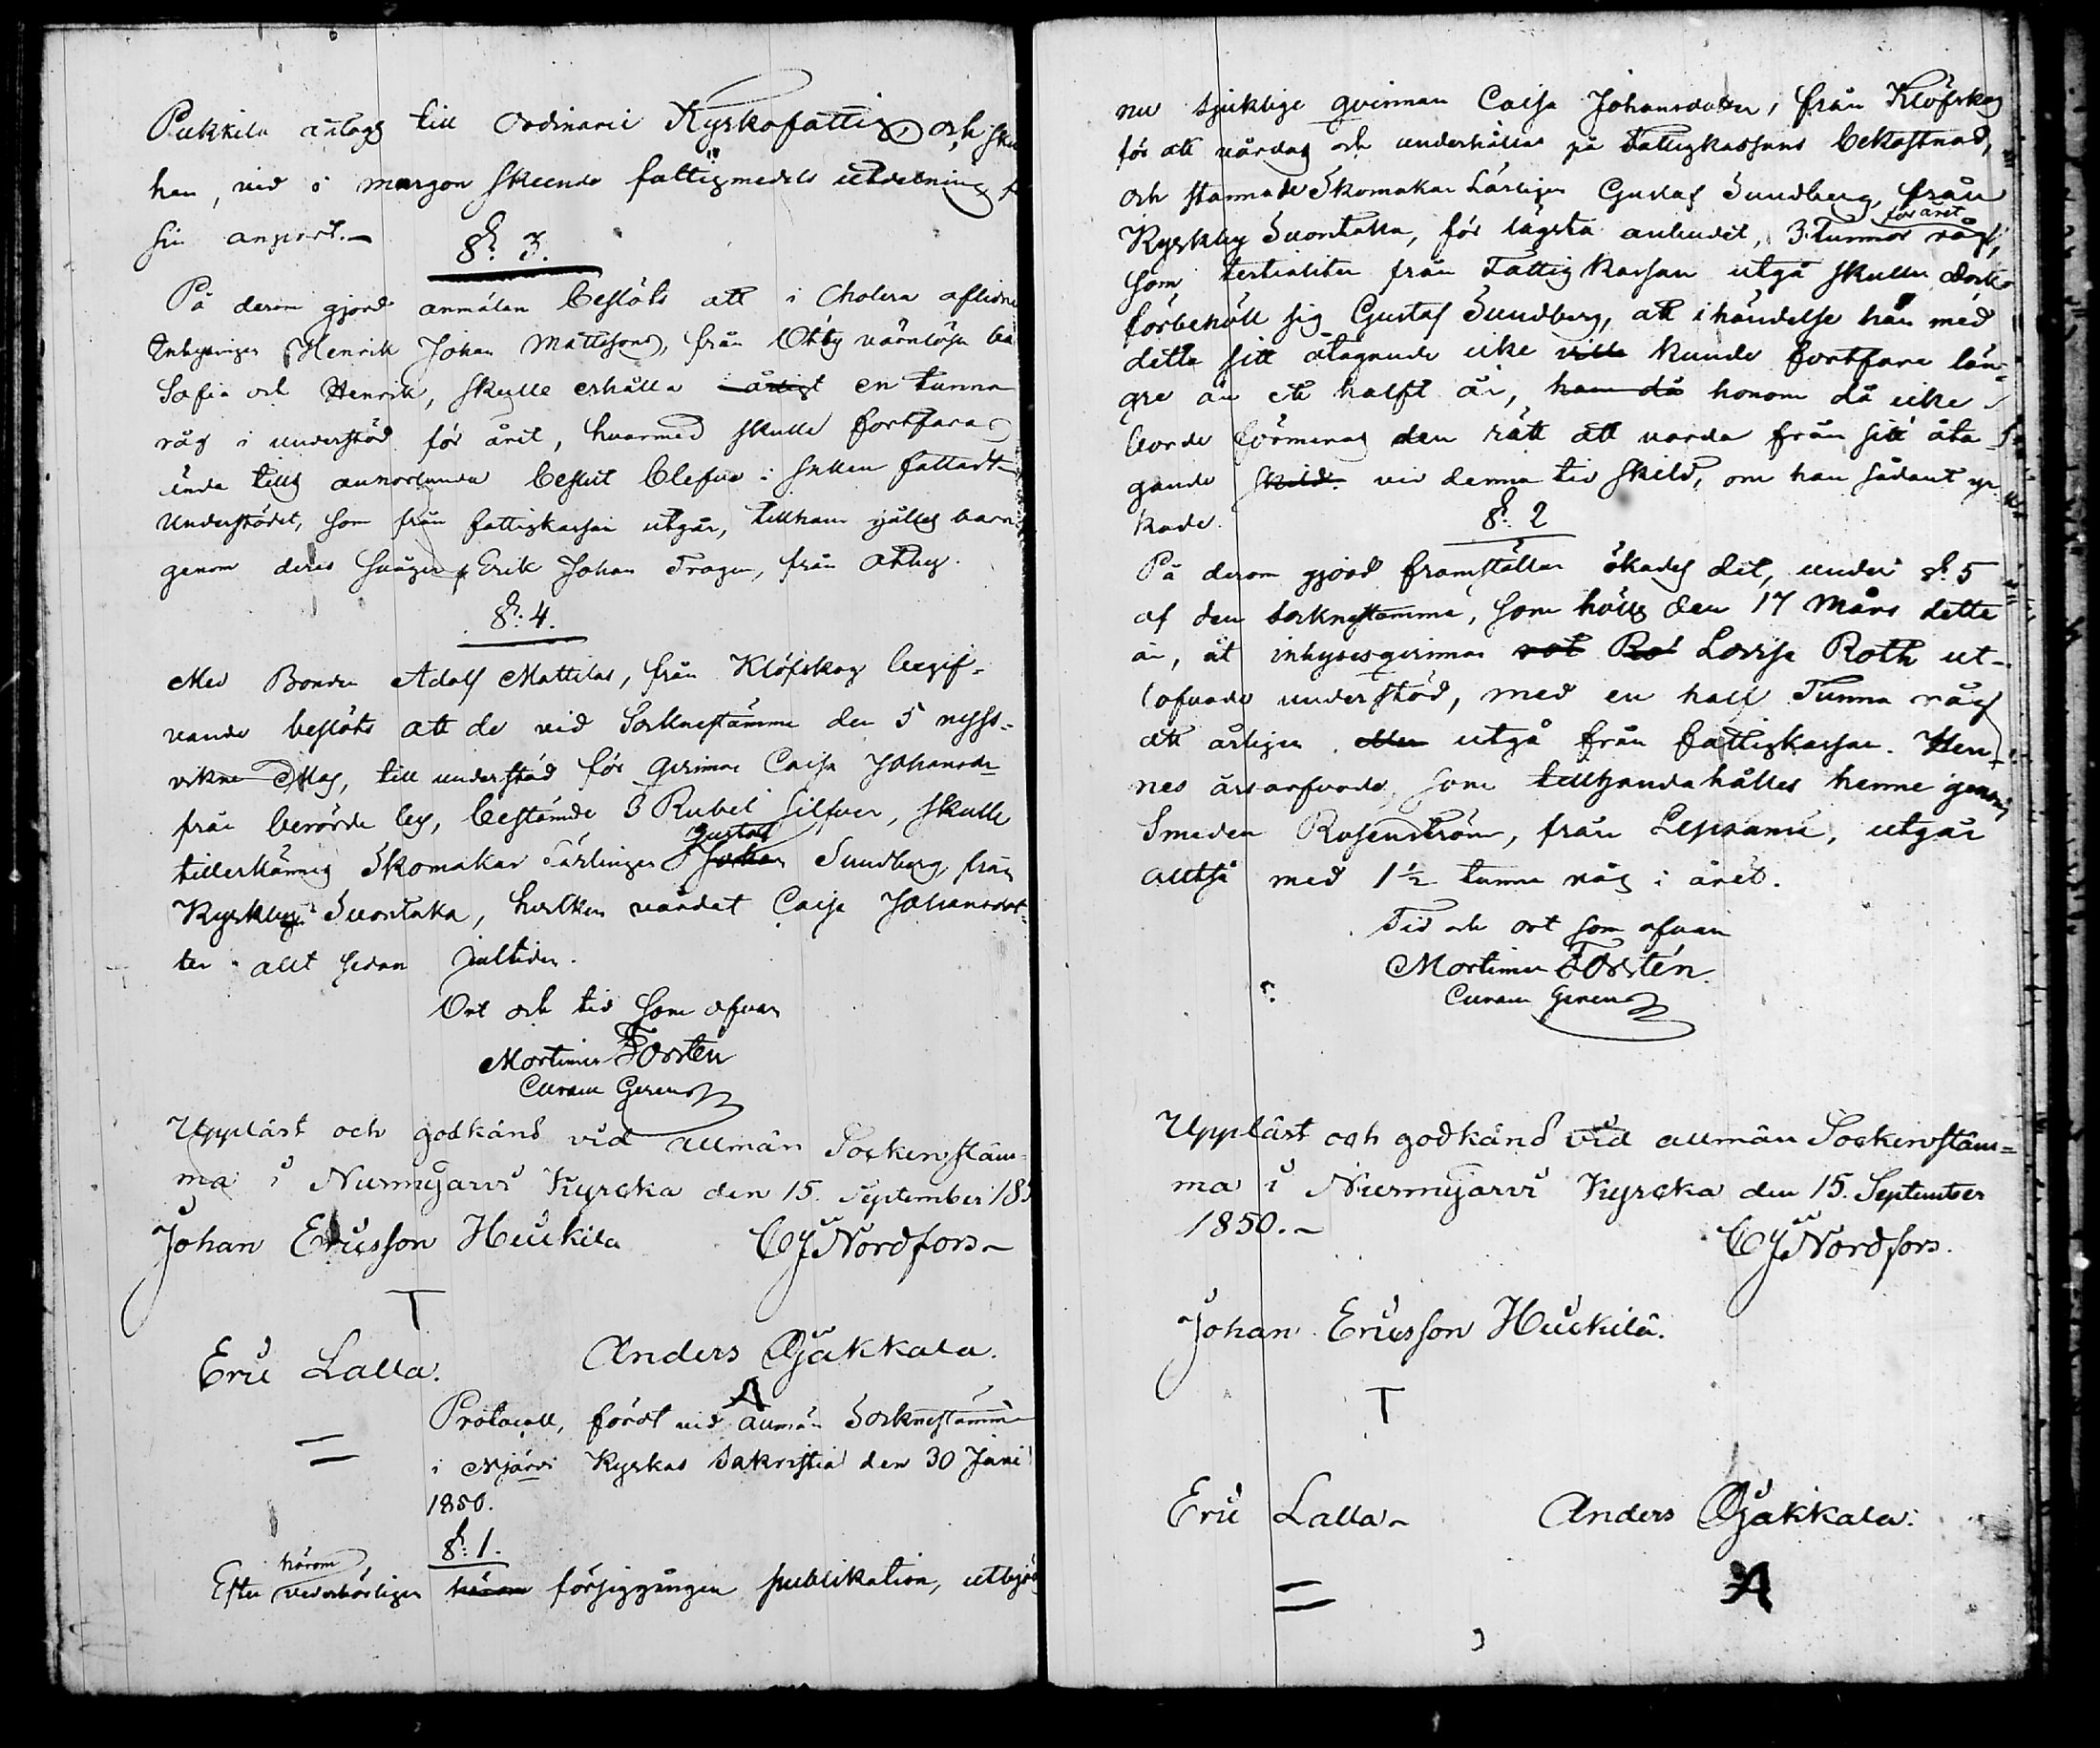 Pukkila antags till ordinarie Kyrkofattig, och sku
han, vid i morgon skeende fattigmedels utdelning f
sin anpart.
§: 3.
På derom gjord anmälan beslöts att i Cholera aflidne
Inhysingen Henrik Johan Mattssons, från Ohby värnlösa ba
Sofia och Henrik, skulle erhålla årligt en tunna
råg i understöd för året, hvarmed skulle fortfara
ända tills annorlunda beslut blefve i saken fattadt
Understödet, som från fattigkassan utgår, tillhandahålles barn
genom deras Svåger Erik Johan Tragen, från Ohby.
§: 4.
Med Bonden Adolf Mattilas, från Klöfskog begif-
vande beslöts att de vid Socknestämma den 5 nyss-
vikne Maj, till understöd för qvinnan Caisa Johansdr
från berörde by, bestämde 3 Rubel Silfver, skulle
tillerkännas Skomakar Lärlingen Johan Gustaf Sundberg från
Kyrkby Suontaka, hvilken vårdat Caisa Johansdot-
ter allt sedan jultiden.
Ort och tid som ofvan
Mortimer Forstén
Curam Gerens
Uppläst och godkänd vid allmän Sockenstäm-
ma i Nurmijärvi Kyrcka den 15. September 185
Johan Ericsson Heickilä C J Nordfors
T
Eric Lalla. Anders Ojakkala.
A
Protocoll, fördt vid allmän Socknestämma
i Njärvi Kyrkas Sakristia den 30 Juni
1850.
§: 1.
Efter härom vederbörligen härom försiggången publikation, utbjöds
nu sjuklige qvinnan Caisa Johansdotter, från Klöfskog
för att vårdas och underhållas på Fattigkassans bekostnad,
och stannade Skomakar Lärlingen Gustaf Sundberg, från
Kyrkby Suontaka, för lägsta anbudet, 3 Tunnor råg för året,
som tertialiter från Fattig Kassan utgå skulle dock
förbehöll sig Gustaf Sundberg, att i händelse han med
detta sitt åtagande icke ville kunde fortfara län-
gre än ett halft år, ham då honom då icke
borde förmenas den rätt att varda från sitt åta-
gande skild. vid denna tid skild, om han sådant yr-
kade.
§: 2
På derom gjord framställan ökades det, under §: 5
af den Socknestämma, som hölls den 17 Mars dette
år, åt inhysesqvinnan rot Ro Lovisa Roth ut-
lofvade understöd, med en half Tunna råg
att årligen utgå från fattigkassan. Hen-
nes årsarfvode, som tillhandahålles henne genom
Smeden Rosenström, från Lepsämä, utgår
alltså med 1 1/2 tunna råg i året.
Tid och ort som ofvan
Mortimer Forstén.
Curam Gerens
Uppläst och godkänd vid allmän Sockenstäm=
ma i Nurmijärvi Kyrcka den 15. September
1850.
C J Nordfors.
Johan Ericsson Heickilä.
T
Eric Lalla Anders Ojakkala.
A